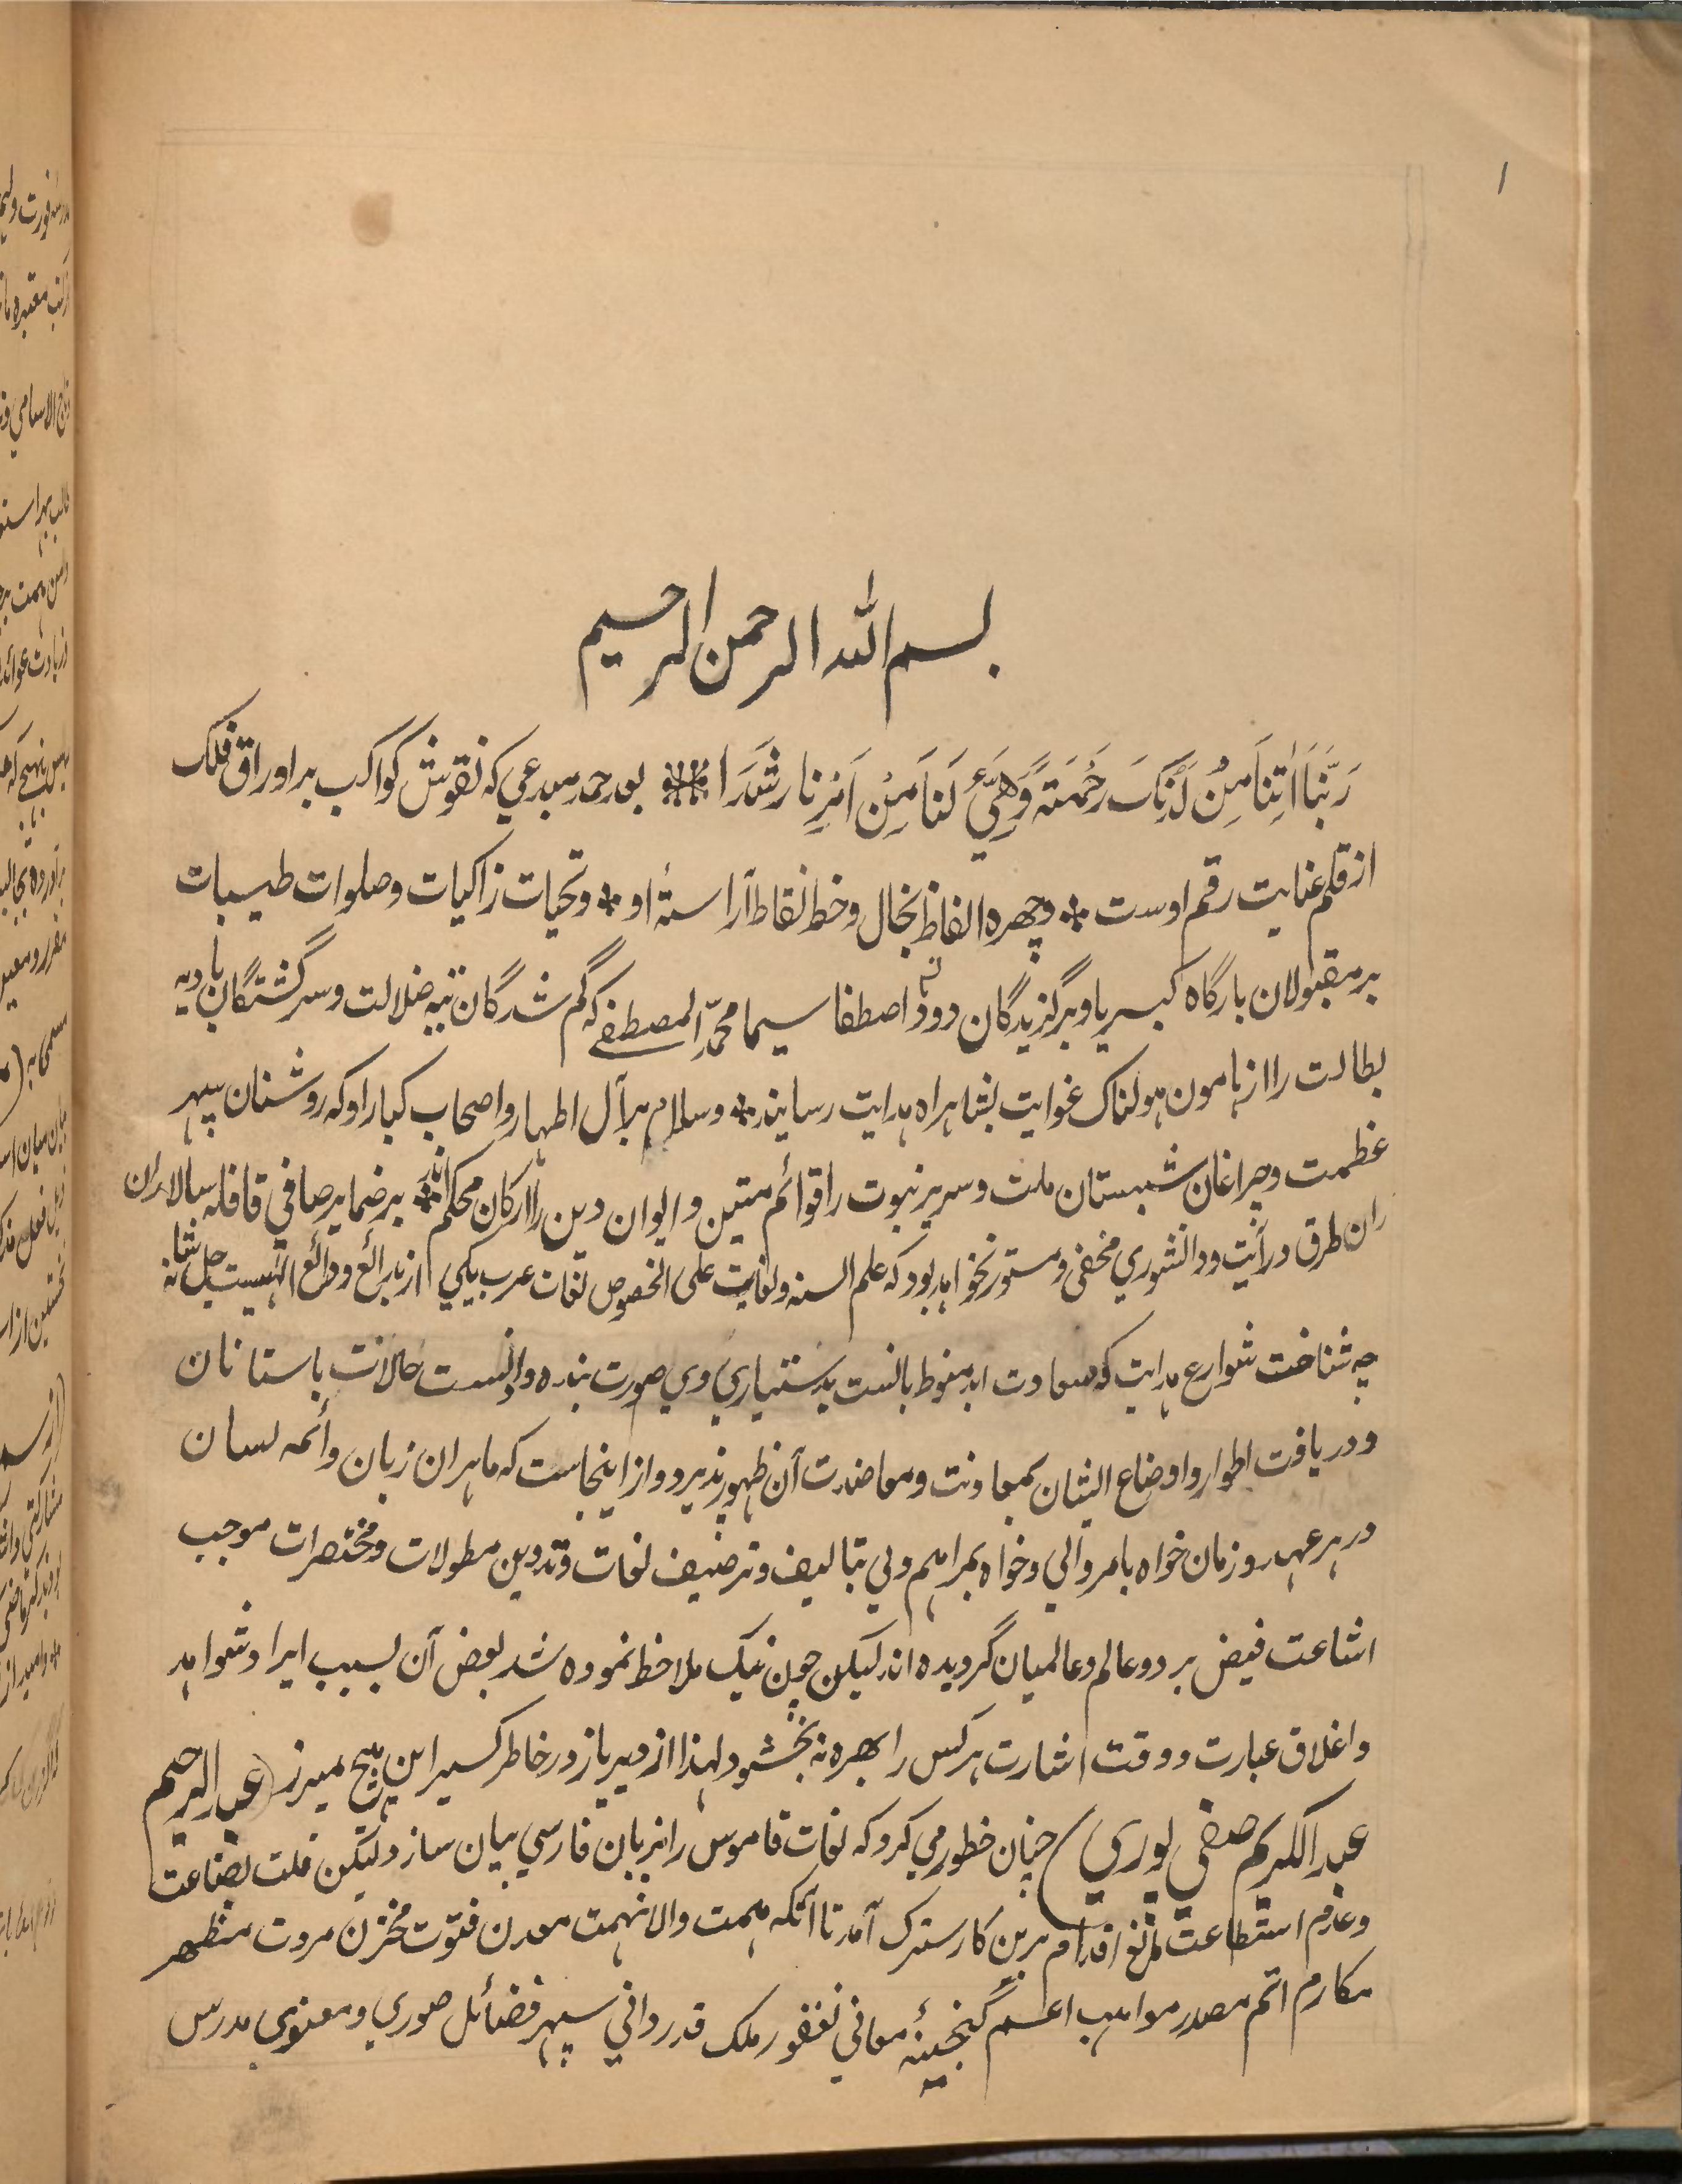 ۱
بسم الله الرحمن الرحیم
رَبَّنَا اٰتِنَا مِنْ لَّدُنْکَ رَحْمَتَہً وَّهَیِّئْ لَنَا مِنْ اَمْرِنَا رَشَدَا بعد حمد مبدعی که نقوش کواکب بر اوراق فلک
از قلم عنایت رقم اوست وچهره الفاظ بخال وخط نقاط آراستهٔ او وتحیات زاکیات وصلوات طیبات
بر مقبولان بارگاه کبریا وبرگزیدگان دودهٔ اصطفا سیما محمدِ المصطفی که گم شدگان تیه ضلالت وسرگشتگان بادیه
بطالت را از هامون هولناک غوایت بشاهراه هدایت رسانید وسلام بر آل اطهار واصحاب کبار او که روشنان سپهر
عظمت وچراغان شبستان ملت وسریر نبوت را قوائم متین وایوان دین را ارکان محکم اند بر ضمایر صافی قافله سالاران
ران طرق درایت ودانشوري مخفی ومستور نخواهد بود که علم السنه ولغات علی الخصوص لغات عرب یکي از بدائع ودائع الهیست جل شانه
چه شناخت شوارع هدایت که سعادت ابد منوط بانست بدستیاري وي صورت بندد ودانست حالات باستانان
ودریافت اطوار واوضاع ایشان بمعاونت ومعاضدت آن ظهور پذیرد واز اینجاست که ماهران زبان وائمه لسان
در هر عهد وزمان خواه بامر والي وخواه بمراهم ولي بتالیف وترصیف لغات وتدوین مطولات ومختصرات موجب
اشاعت فیض بر دو عالم وعالمیان گردیده اند لیکن چون نیک ملاحظ نموده شد بعض آن بسبب ایراد شواهد
واغلاق عبارت ودقت اشارت هر کس را بهره نه بخشود لهذا از دیر باز در خاطر کسیر این هیچ میرز (عبدالرحیم
عبدالکریم صفي پوري) چنان خطور مي کرد که لغات قاموس را بزبان فارسي بیان سازد ولیکن قلت بضاعت
وعدم استطاعت مانع اقدام برین کار سترک آمد تا آنکه همت والا نهمت معدن فتوت مخزن مروت مظهر
مکارم اتم مصدر مواهب اعم گنجینهٔ معاني فغفور ملک قدرداني سپهر فضائل صوري ومعنوي مدرس